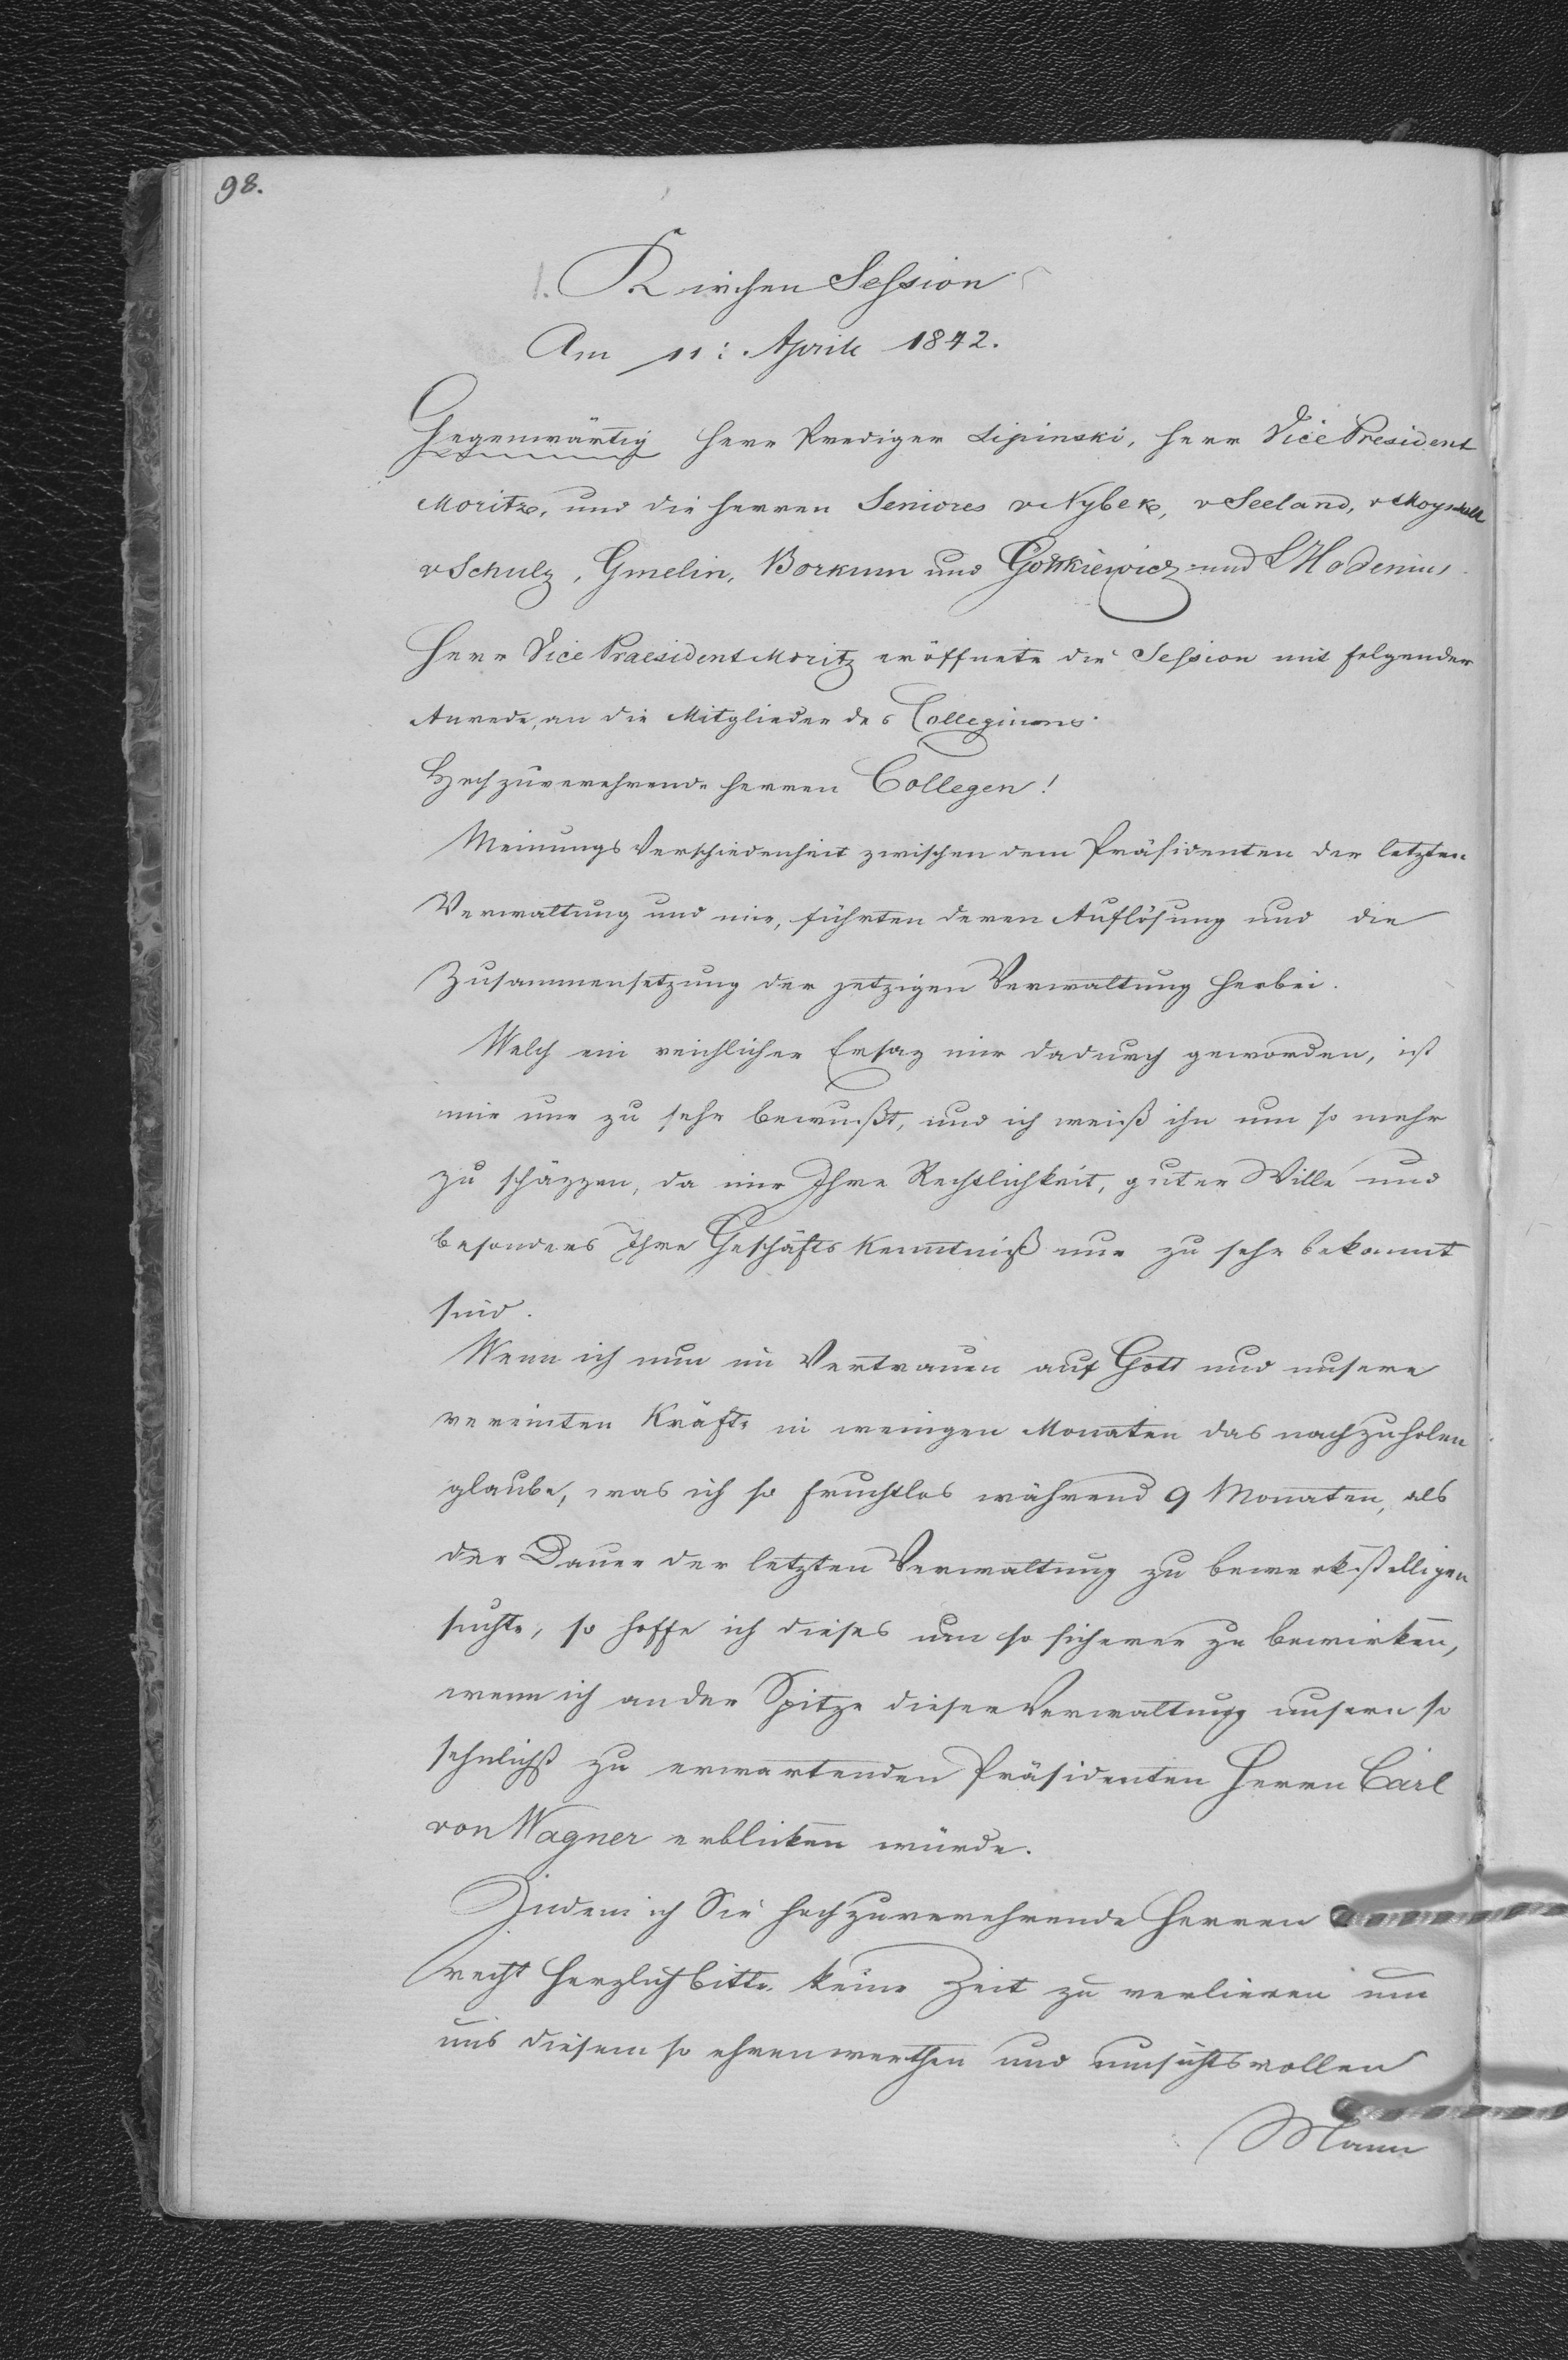 98.
1. Kirchen Session
Am 11: Aprile 1842.
Gegenwärtig Herr Prediger Lipinski, Herr Vice President
Moritz, und die Herren Seniores v Nybek, v Seeland,
v Schulz, Gmelin, Borkum und Gottkiewicz und Hodenius.
Herr Vice Praesident Moritz eröffnete die Session mit folgender
Anrede, an die Mitglieder des Collegiums.
Hochzuverehrende Herren Collegen!
Meinungs Verschiedenheit zwischen dem Präsidenten der letzten
Verwaltung und mir, führten deren Auflösung und die
Zusammensetzung der jetzigen Verwaltung herbei.
Welch ein reichlicher Ersaz mir dadurch geworden, ist
mir nur zu sehr bewußt, und ich weiß ihn um so mehr
zu schäzzen, da mir Ihre Rechtlichkeit, guter Wille und
besonders Ihre Geschäfts Kenntniß nur zu sehr bekannt
sind.
Wenn ich nun im Vertrauen auf Gott und unsere
vereinten Kräfte in wenigen Monaten das nachzuholen
glaube, was ich so fruchtlos während 9 Monaten, als
der Dauer der letzten Verwaltung zu bewerkstelligen
suchte, so hoffe ich dieses um so sicherer zu bewirken,
wenn ich an der Spitze dieser Verwaltung unsern so
sehnlichst zu erwartenden Präsidenten Herrn Carl
von Wagner erblicken würde.
Indem ich Sie hochzuverehrende Herren
recht herzlich bitte, keine Zeit zu verlieren um
uns diesem so ehrenwerthen und umsichtsvollen
Mann